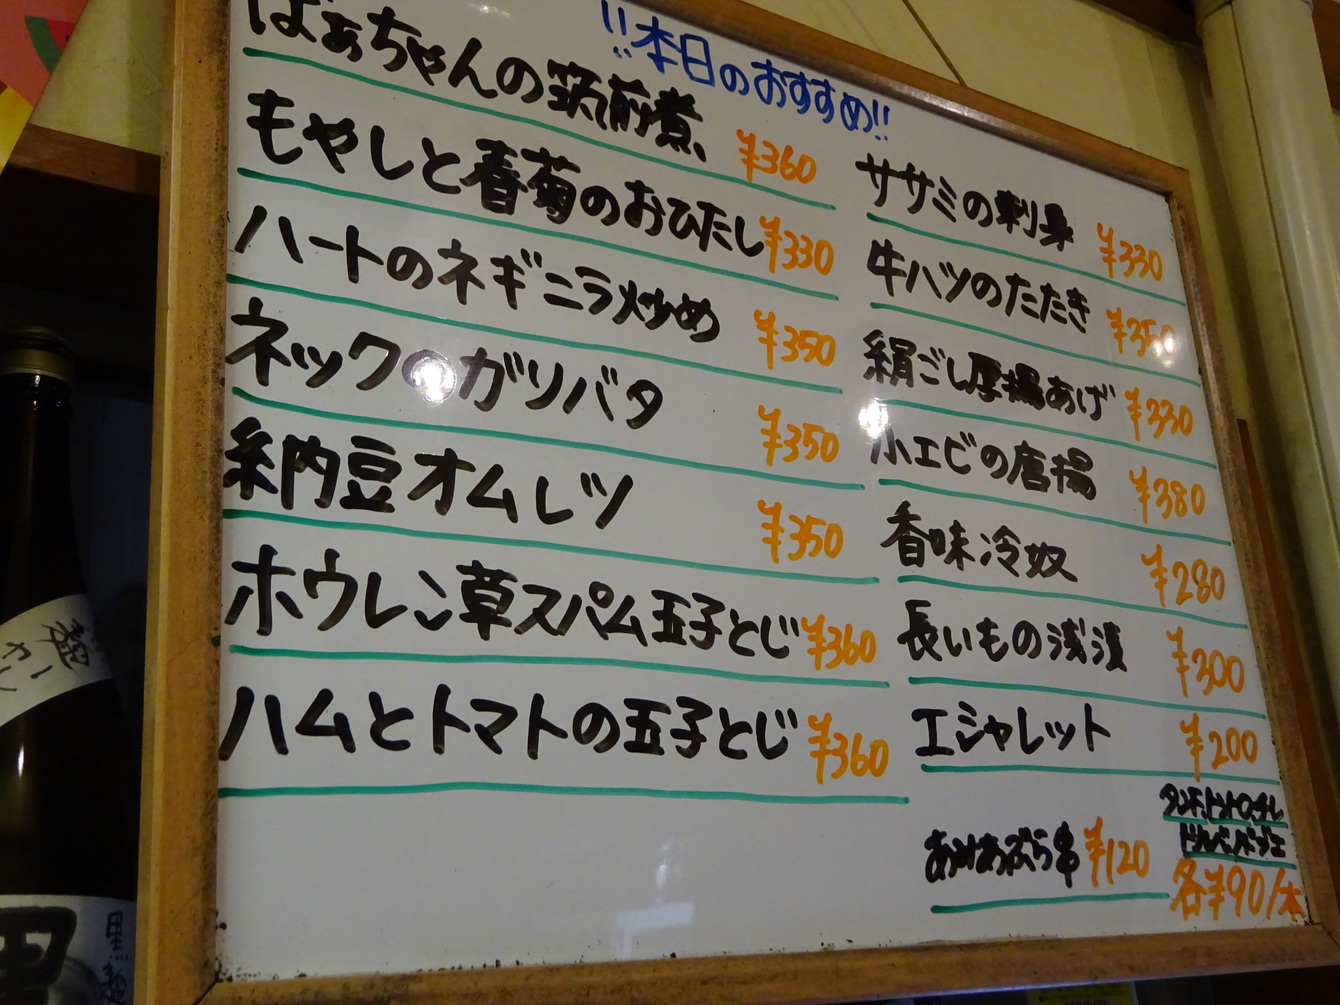 !!本日のおすすめ!!
ばぁちゃんの筑前煮 ¥360
もやしと春菊のおひたし ¥330
ハートのネギニラ炒め ¥350
ネックのガリバタ ¥350
納豆オムレツ ¥350
ホウレン草スパム玉子とじ ¥360
ハムとトマトの玉子とじ ¥360
ササミの刺身 ¥330
牛ハツのたたき ¥350
絹ごし厚揚あげ ¥330
小エビの唐揚 ¥380
香味冷奴 ¥280
長いもの浅漬 ¥300
エシャレット ¥200
あみあぶら串 ¥120
各¥90/本